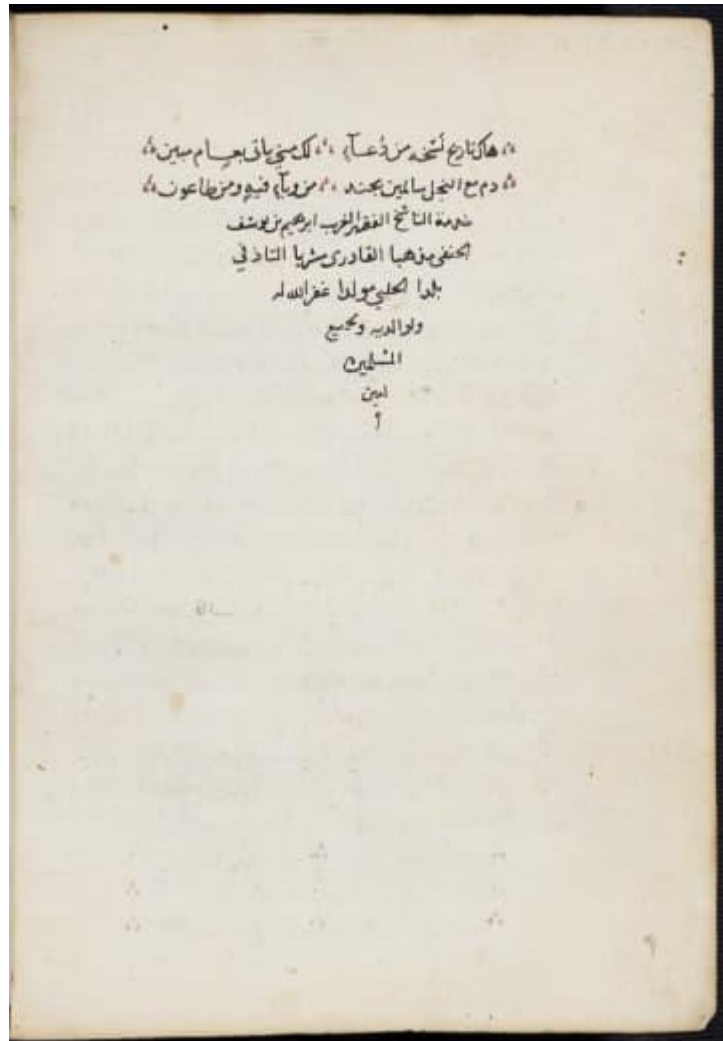 هاك تاريخ نسخه من دعاء لك مني ياتى بعام مبين
دم مع النجل سالمين بجند من وباء فيه ومن طاعون
الناسخ الفقير ابرهيم بن يوسف
الحنفى مذهبا القادرى مشربا التاذفي
بلدا الحلبي مولدا غفر الله له
ولوالديه ولجميع
المسلمين
امين
م